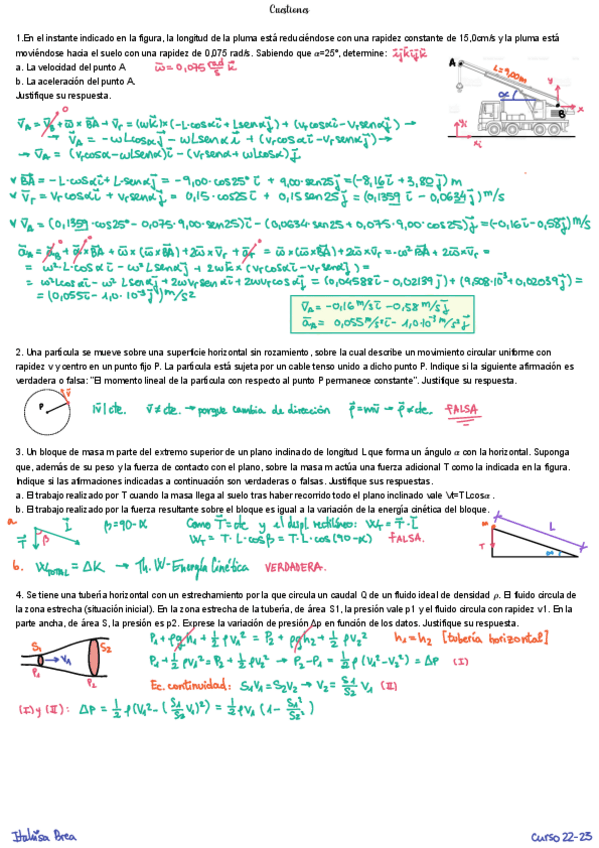 Cuestiones
1.En el instante indicado en la figura, la longitud de la pluma está reduciéndose con una rapidez constante de 15,0cm/s y la pluma está
moviéndose hacia el suelo con una rapidez de 0,075 rad/s. Sabiendo que α=25°, determine: i⃗ j⃗ k⃗ i⃗ j⃗ k⃗
a. La velocidad del punto A    ω⃗ = 0,075 rad/s k⃗
b. La aceleración del punto A.
Justifique su respuesta.
A L=9,00m α B y x
y₁ x₁
v⃗A = v⃗B + ω⃗ × BA + v⃗r = (ωk⃗)×(-L·cosα i⃗ + L senα j⃗) + (vr cosα i⃗ - vr senα j⃗) →
→ v⃗A = -ωL cosα j⃗ - ωL senα i⃗ + (vr cosα i⃗ - vr senα j⃗) →
→ v⃗A = (vr cosα - ωL senα) i⃗ - (vr senα + ωL cosα) j⃗
v BA = -L·cosα i⃗ + L·senα j⃗ = -9,00·cos25° i⃗ + 9,00·sen25 j⃗ = (-8,16 i⃗ + 3,80 j⃗) m
v v⃗r = vr cosα i⃗ + vr senα j⃗ = 0,15·cos25 i⃗ + 0,15 sen25 j⃗ = (0,1359 i⃗ - 0,0634 j⃗) m/s
v v⃗A = (0,1359·cos25° - 0,075·9,00·sen25) i⃗ - (0,0634 sen25 + 0,075·9,00·cos25) j⃗ = (-0,16 i⃗ - 0,58 j⃗) m/s
a⃗A = a⃗B + α⃗ × BA + ω⃗ × (ω⃗ × BA) + 2ω⃗ × v⃗r + a⃗r = ω⃗ × (ω⃗ × BA) + 2ω⃗ × v⃗r = -ω² BA + 2ω⃗ × v⃗r =
= ω²·L·cosα i⃗ - ω² L senα j⃗ + 2ωk⃗ × (vr cosα i⃗ - vr senα j⃗) =
= ω²L cosα i⃗ - ω² L senα j⃗ + 2ωvr senα i⃗ + 2ωvr cosα j⃗ = (0,04588 i⃗ - 0,02139 j⃗) + (9,508·10⁻³ i⃗ + 0,02039 j⃗) =
= (0,055 i⃗ - 1,0·10⁻³ j⃗) m/s²
v⃗A = -0,16 m/s i⃗ - 0,58 m/s j⃗
a⃗A = 0,055 m/s² i⃗ - 1,0·10⁻³ m/s² j⃗
2. Una partícula se mueve sobre una superficie horizontal sin rozamiento, sobre la cual describe un movimiento circular uniforme con
rapidez v y centro en un punto fijo P. La partícula está sujeta por un cable tenso unido a dicho punto P. Indique si la siguiente afirmación es
verdadera o falsa: "El momento lineal de la partícula con respecto al punto P permanece constante". Justifique su respuesta.
P v⃗ |v⃗| cte. v⃗ ≠ cte. → porque cambia de dirección p⃗ = mv⃗ → p⃗ ≠ cte. FALSA
3. Un bloque de masa m parte del extremo superior de un plano inclinado de longitud L que forma un ángulo α con la horizontal. Suponga
que, además de su peso y la fuerza de contacto con el plano, sobre la masa m actúa una fuerza adicional T como la indicada en la figura.
Indique si las afirmaciones indicadas a continuación son verdaderas o falsas. Justifique sus respuestas.
a. El trabajo realizado por T cuando la masa llega al suelo tras haber recorrido todo el plano inclinado vale Wt=TLcosα .
b. El trabajo realizado por la fuerza resultante sobre el bloque es igual a la variación de la energía cinética del bloque.
a. T⃗ β L⃗ β=90-α Como T⃗=cte y el despl. rectilíneo: WT = T⃗·L⃗
WT = T·L·cosβ = T·L·cos(90-α) FALSA.
m L T α
b. WTOTAL = ΔK → Th. W-Energía Cinética VERDADERA.
4. Se tiene una tubería horizontal con un estrechamiento por la que circula un caudal Q de un fluido ideal de densidad ρ. El fluido circula de
la zona estrecha (situación inicial). En la zona estrecha de la tubería, de área S1, la presión vale p1 y el fluido circula con rapidez v1. En la
parte ancha, de área S, la presión es p2. Exprese la variación de presión Δp en función de los datos. Justifique su respuesta.
S₁ v₁ P₁ S₂ P₂
P₁ + ρgh₁ + ½ρv₁² = P₂ + ρgh₂ + ½ρv₂² h₁=h₂ [tubería horizontal]
P₁ + ½ρv₁² = P₂ + ½ρv₂² → P₂-P₁ = ½ρ(v₁²-v₂²) = ΔP (I)
Ec. continuidad: S₁v₁ = S₂v₂ → v₂ = S₁/S₂ v₁ (II)
(I) y (II): ΔP = ½ρ(v₁² - (S₁/S₂ v₁)²) = ½ρv₁(1 - S₁²/S₂²)
Curso 22-23